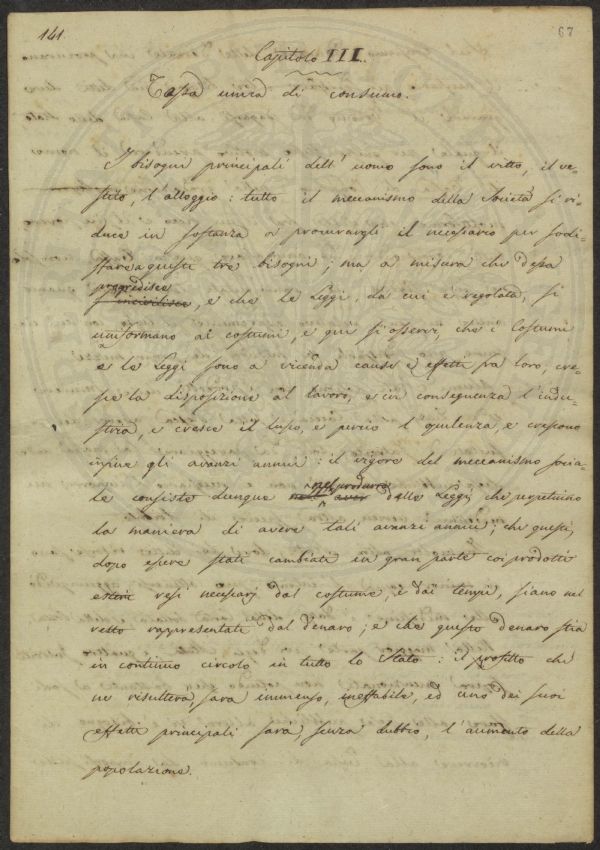 141.
67
Capitolo III.
Tassa unica di consumo.
I bisogni principali dell' uomo sono il vitto, il ve-
stito, l'alloggio: tutto il meccanismo della Società si ri-
duce in sostanza a procurargli il necessario per sodis-
fare a questi tre bisogni; ma a misura che dessa
progredisce
s'incivilisce, e che le Leggi, da cui è regolata, si
uniformano ai costumi, e qui si osservi, che i Costumi
e le Leggi sono a vicenda cause e effetti fra loro, cre-
sce la disposizione al lavoro, e in conseguenza l'indu-
stria, e cresce il lusso, e perciò l'opulenza, e crescono
infine gli avanzi annui: il vigore del meccanismo socia-
nel produrre
le consiste dunque aver dalle Leggi, che
la maniera di avere tali avanzi annui; che questi,
dopo essere stati cambiati in gran parte coi prodotti
esteri resi necessarj dal costume, e dai tempi, siano nel
resto rappresentati dal denaro; e che questo denaro stia
in continuo circolo in tutto lo Stato: il profitto che
ne risulterà, sarà immenso, ineffabile, ed uno dei suoi
effetti principali sarà, senza dubbio, l'aumento della
popolazione.